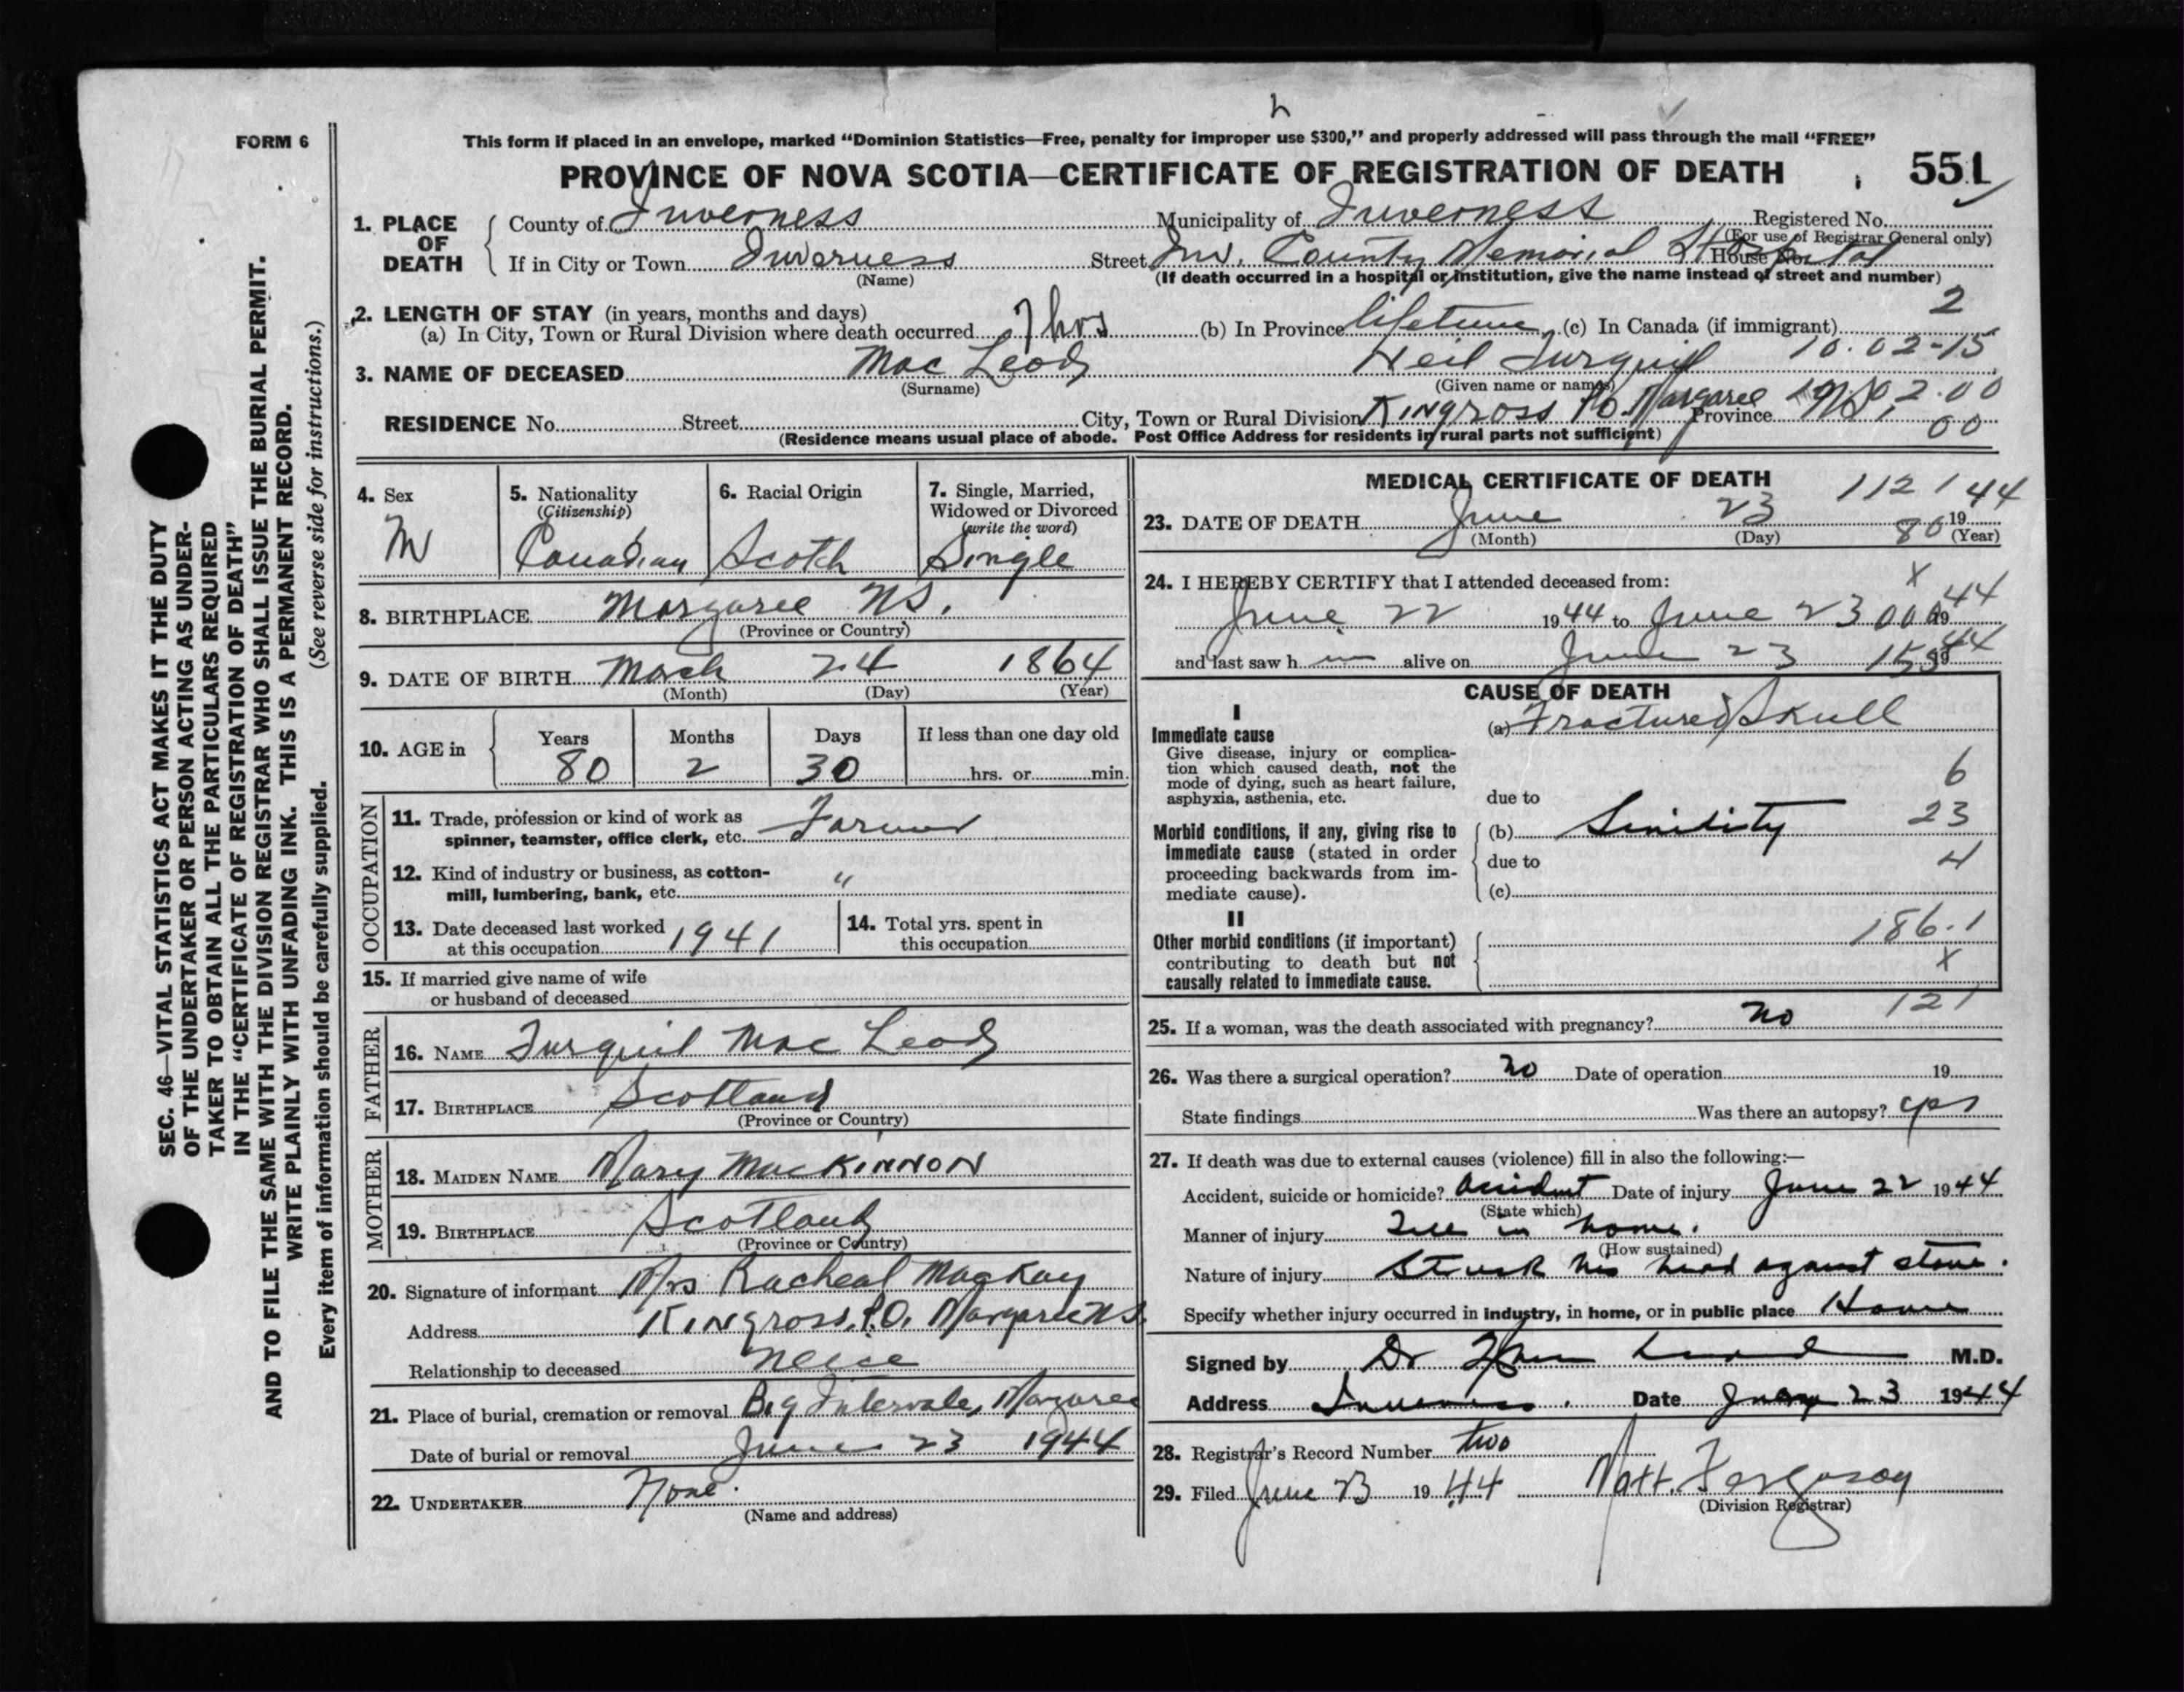 FORM 6
This form if placed in an envelope, marked "Dominion Statistics—Free, penalty for improper use $300," and properly addressed will pass through the mail "FREE"
PROVINCE OF NOVA SCOTIA—CERTIFICATE OF REGISTRATION OF DEATH 551
1. PLACE OF DEATH County of Inverness Municipality of Inverness Registered No.
(For use of Registrar General only)
If in City or Town Inverness Street Inv. County Memorial Hospital House No.
(Name) (If death occurred in a hospital or institution, give the name instead of street and number)
2. LENGTH OF STAY (in years, months and days) 2
(a) In City, Town or Rural Division where death occurred 7 hrs (b) In Province lifetime (c) In Canada (if immigrant)
10.02-15
3. NAME OF DECEASED Mac Leod Neil Turquil
(Surname) (Given name or names)
RESIDENCE No. Street City, Town or Rural Division Kingross P.O. Margaree Province N.S. 02.00
00
(Residence means usual place of abode. Post Office Address for residents in rural parts not sufficient)
4. Sex M
5. Nationality (Citizenship) Canadian
6. Racial Origin Scotch
7. Single, Married, Widowed or Divorced (write the word) Single
8. BIRTHPLACE Margaree N.S.
(Province or Country)
9. DATE OF BIRTH March 24 1864
(Month) (Day) (Year)
10. AGE in Years 80 Months 2 Days 30 If less than one day old hrs. or min.
OCCUPATION
11. Trade, profession or kind of work as spinner, teamster, office clerk, etc. Farmer
12. Kind of industry or business, as cotton-mill, lumbering, bank, etc. "
13. Date deceased last worked at this occupation 1941
14. Total yrs. spent in this occupation
15. If married give name of wife or husband of deceased
FATHER
16. NAME Turquil Mac Leod
17. BIRTHPLACE Scotland
(Province or Country)
MOTHER
18. MAIDEN NAME Mary MacKinnon
19. BIRTHPLACE Scotland
(Province or Country)
20. Signature of informant Mrs Racheal MacKay
Address Kingross, P.O. Margaree N.S.
Relationship to deceased Neice
21. Place of burial, cremation or removal Big Intervale, Margaree
Date of burial or removal June 23 1944
22. UNDERTAKER None.
(Name and address)
MEDICAL CERTIFICATE OF DEATH 1121
23. DATE OF DEATH June 23 1944
(Month) (Day) 80 (Year)
24. I HEREBY CERTIFY that I attended deceased from: X
June 22 1944 to June 23 000 1944
and last saw h im alive on June 23 153 1944
CAUSE OF DEATH
I
Immediate cause
Give disease, injury or complication which caused death, not the mode of dying, such as heart failure, asphyxia, asthenia, etc.
(a) Fractured Skull
6
due to
Morbid conditions, if any, giving rise to immediate cause (stated in order proceeding backwards from immediate cause).
(b) Senility 23
due to 4
(c)
II
Other morbid conditions (if important) contributing to death but not causally related to immediate cause.
186.1
X
25. If a woman, was the death associated with pregnancy? no 121
26. Was there a surgical operation? no Date of operation 19
State findings Was there an autopsy? yes
27. If death was due to external causes (violence) fill in also the following:—
Accident, suicide or homicide? Accident Date of injury June 22 1944
(State which)
Manner of injury Fell in home.
(How sustained)
Nature of injury Struck his head against stove.
Specify whether injury occurred in industry, in home, or in public place Home
Signed by Dr M.D.
Address Inverness. Date 23 1944
28. Registrar's Record Number two
29. Filed June 23 1944 Matt. Ferguson
(Division Registrar)
SEC. 46—VITAL STATISTICS ACT MAKES IT THE DUTY
OF THE UNDERTAKER OR PERSON ACTING AS UNDER-
TAKER TO OBTAIN ALL THE PARTICULARS REQUIRED
IN THE "CERTIFICATE OF REGISTRATION OF DEATH"
AND TO FILE THE SAME WITH THE DIVISION REGISTRAR WHO SHALL ISSUE THE BURIAL PERMIT.
WRITE PLAINLY WITH UNFADING INK. THIS IS A PERMANENT RECORD.
Every item of information should be carefully supplied. (See reverse side for instructions.)